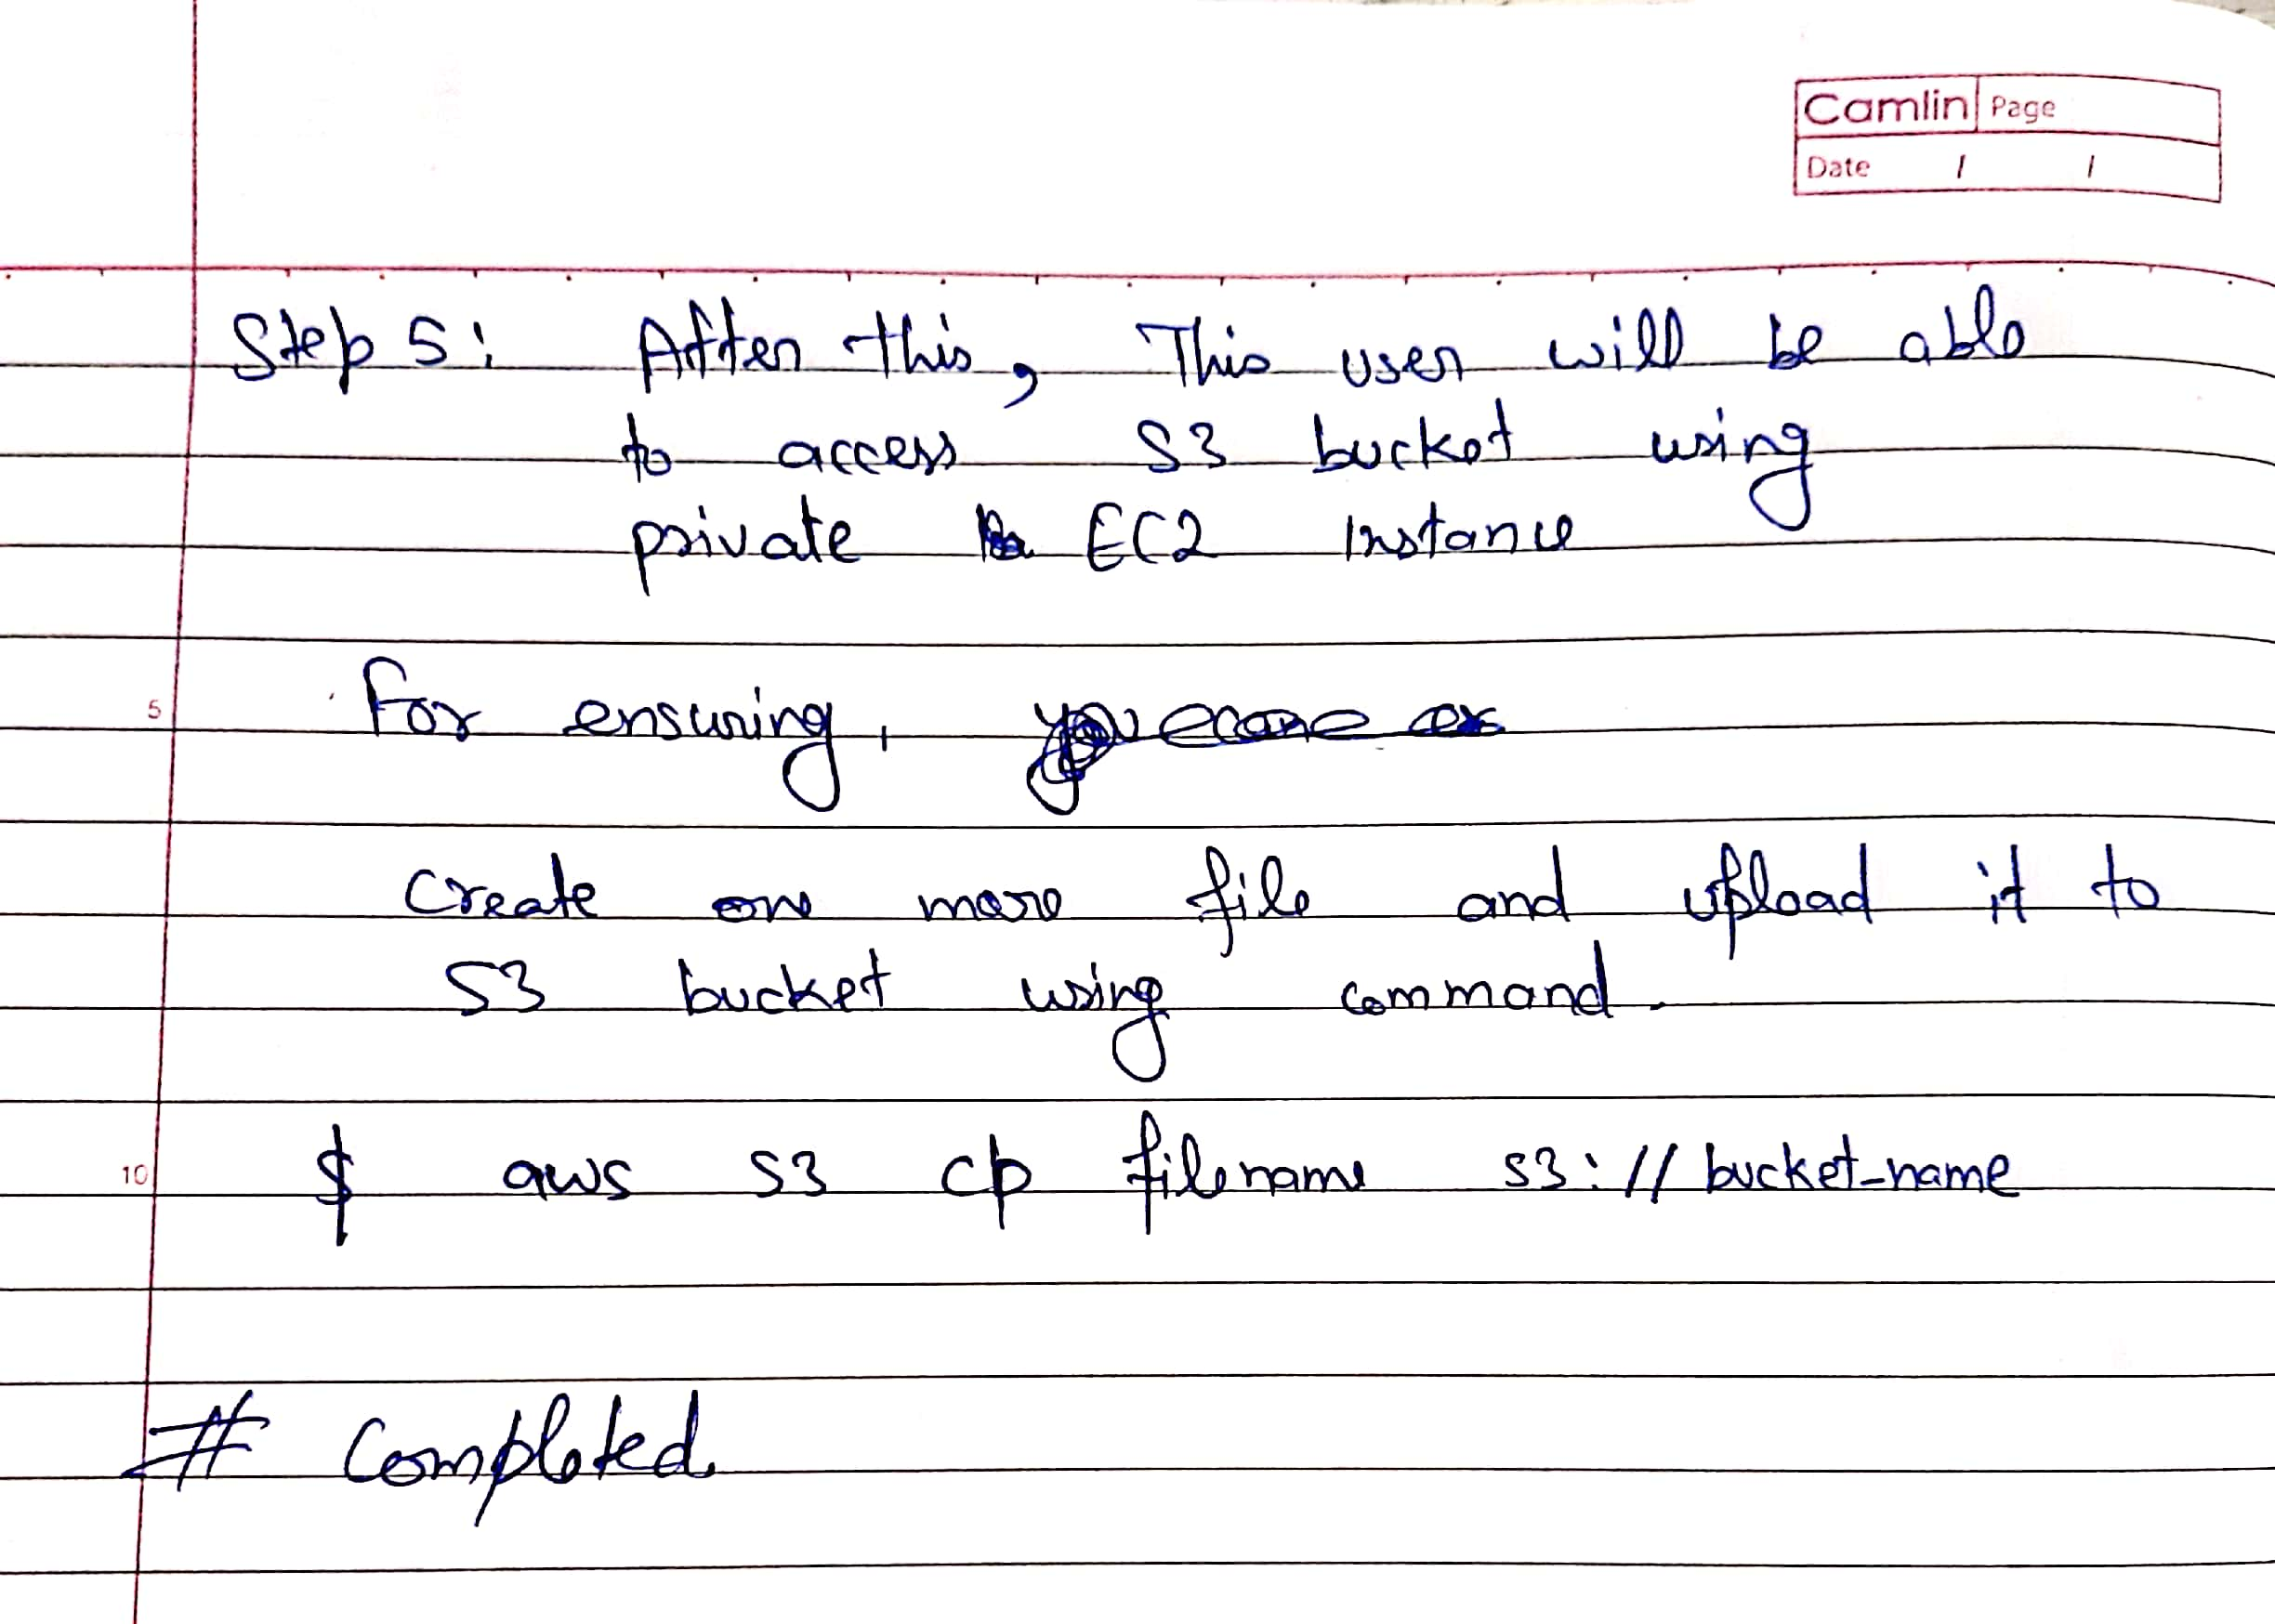 Camlin Page
Date / /
Step 5: After this, This user will be able
to access S3 bucket using
private EC2 instance
5 For ensuring,
Create one more file and upload it to
S3 bucket using command.
10 $ aws s3 cp filename s3://bucket-name
# Completed